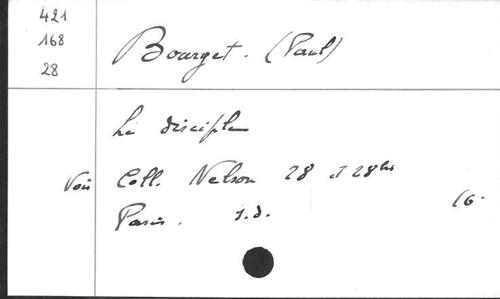 421
168
28
Bourget. (Paul)
Le disciple
Voir Coll. Nelson 28 et 28bis
Paris. s.d. 16.